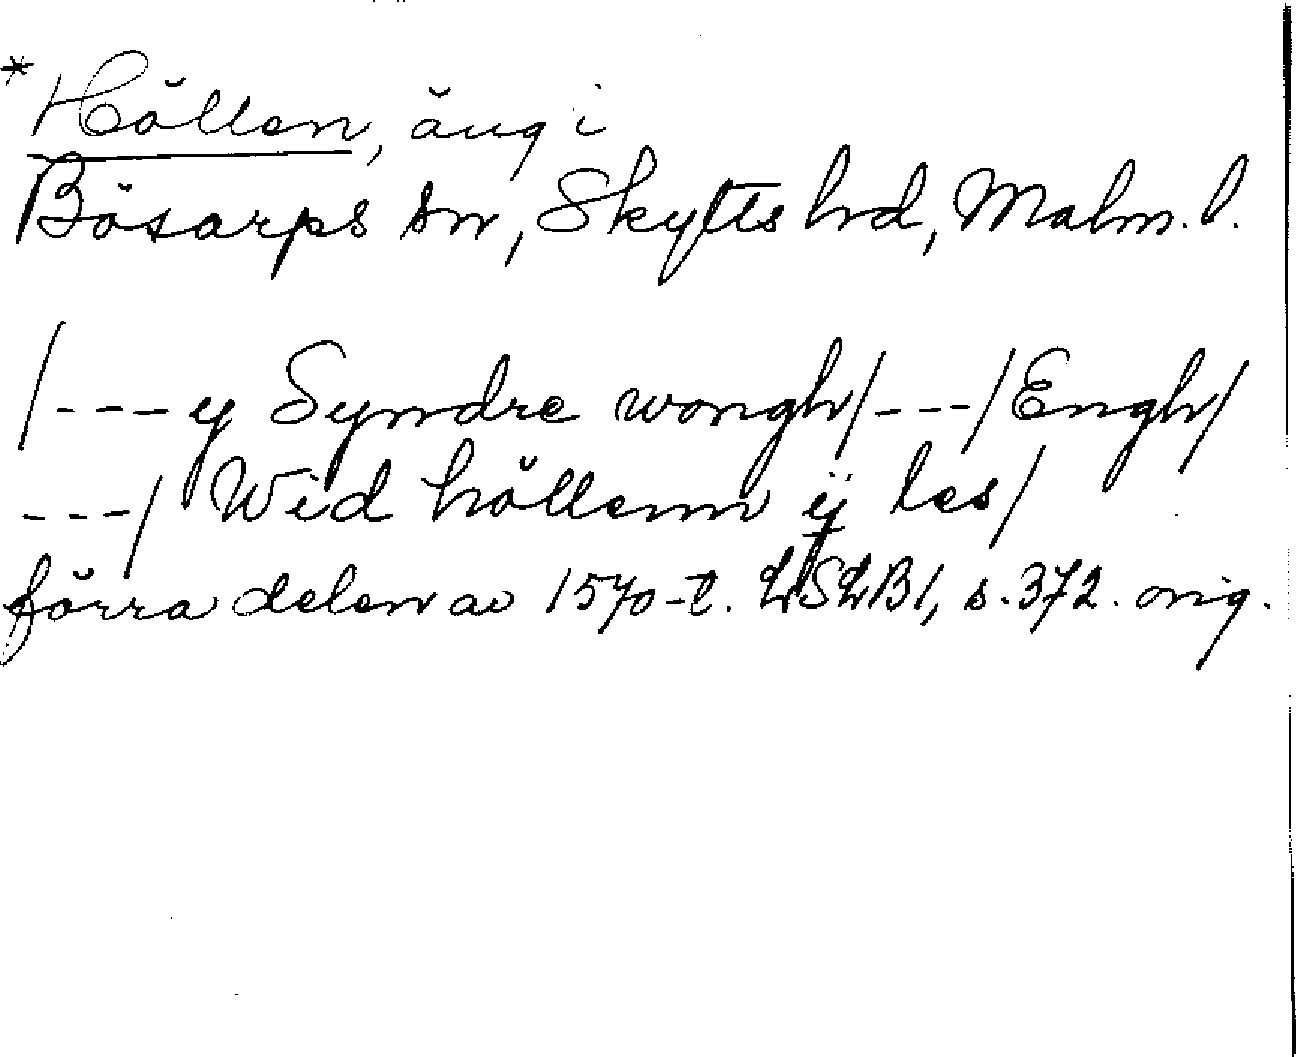 *Höllen, äng i
Bösarps sn, Skytts hd, Malm. l.
/---y Syndre wongh/---/Engh/
---/ Wid höllenn ÿ les/
förra delen av 1570-t. LSLB1, s. 372. orig.